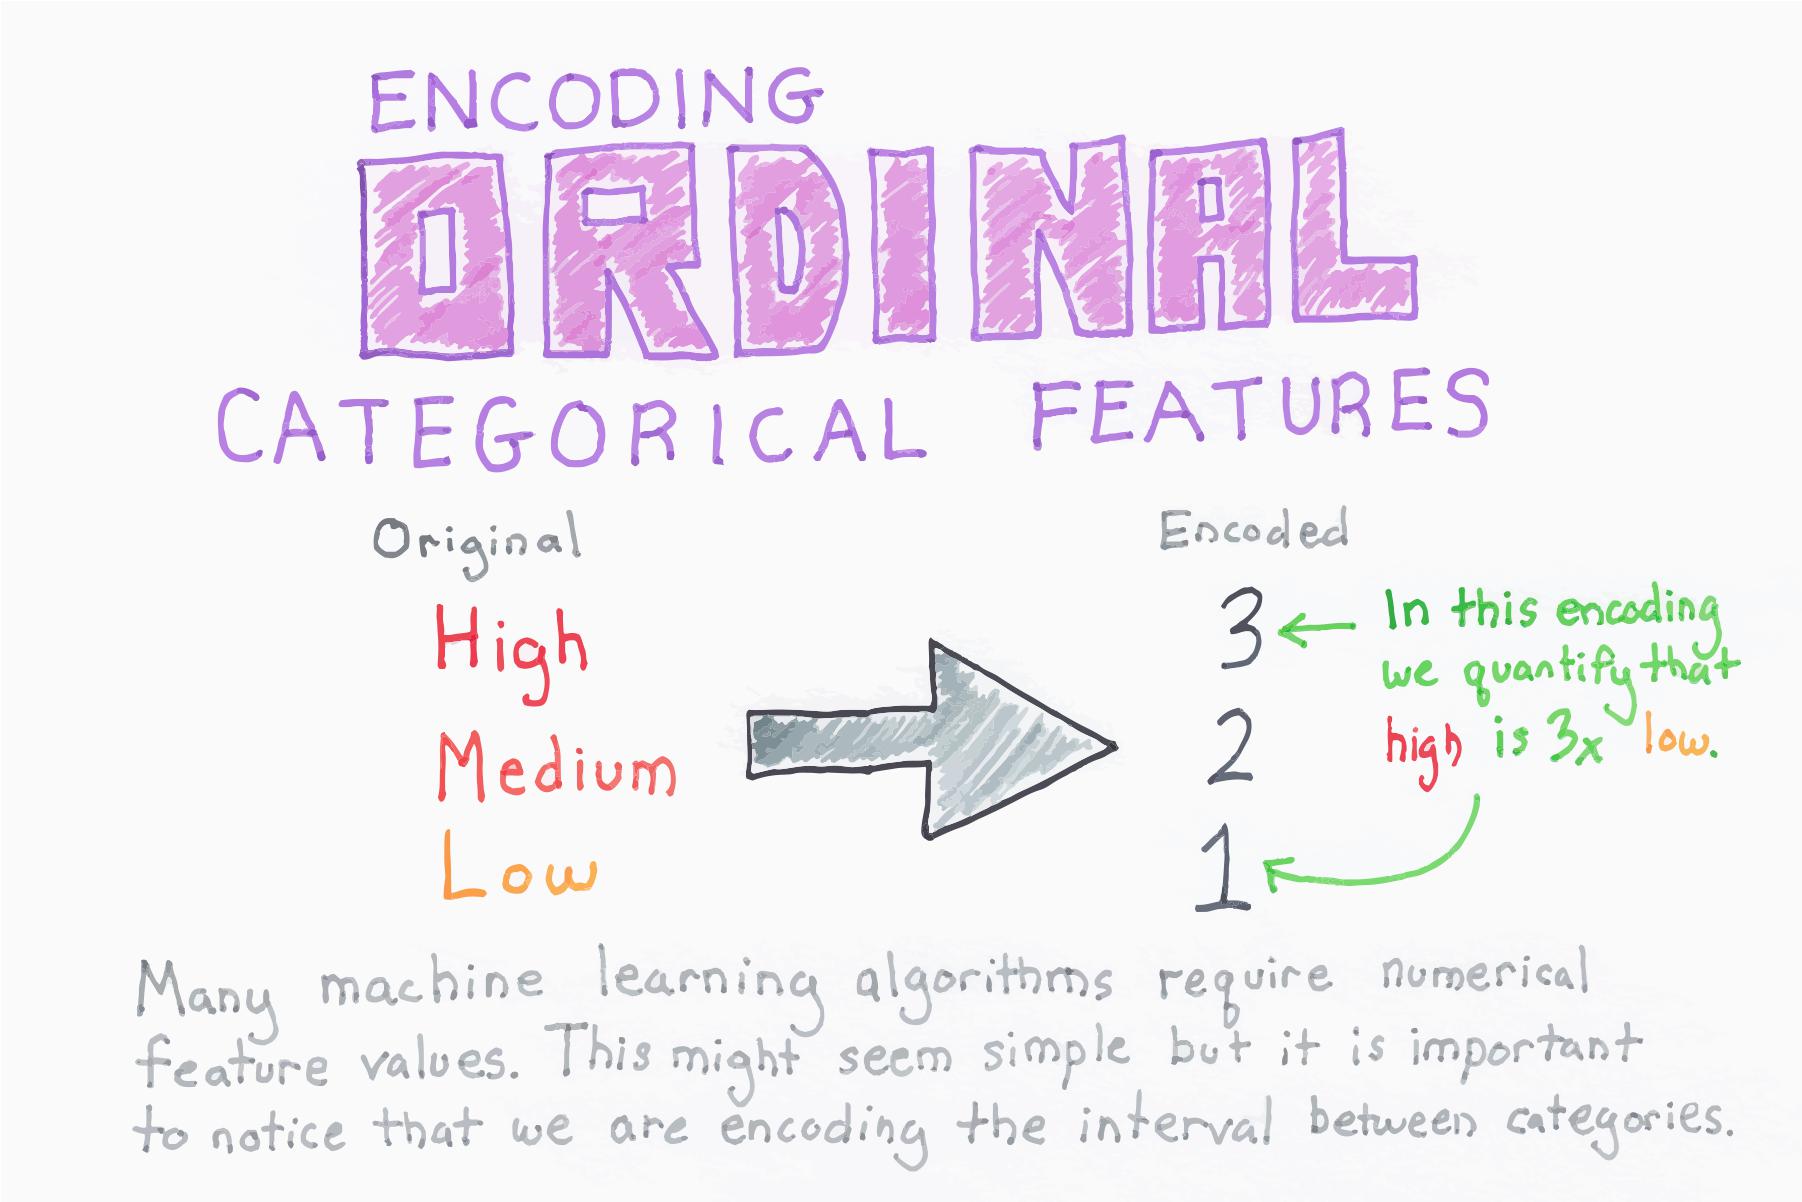 ENCODING
ORDINAL
CATEGORICAL FEATURES
Original
Encoded
High
3
In this encoding
we quantify that
high is 3x low.
Medium
2
Low
1
Many machine learning algorithms require numerical
feature values. This might seem simple but it is important
to notice that we are encoding the interval between categories.